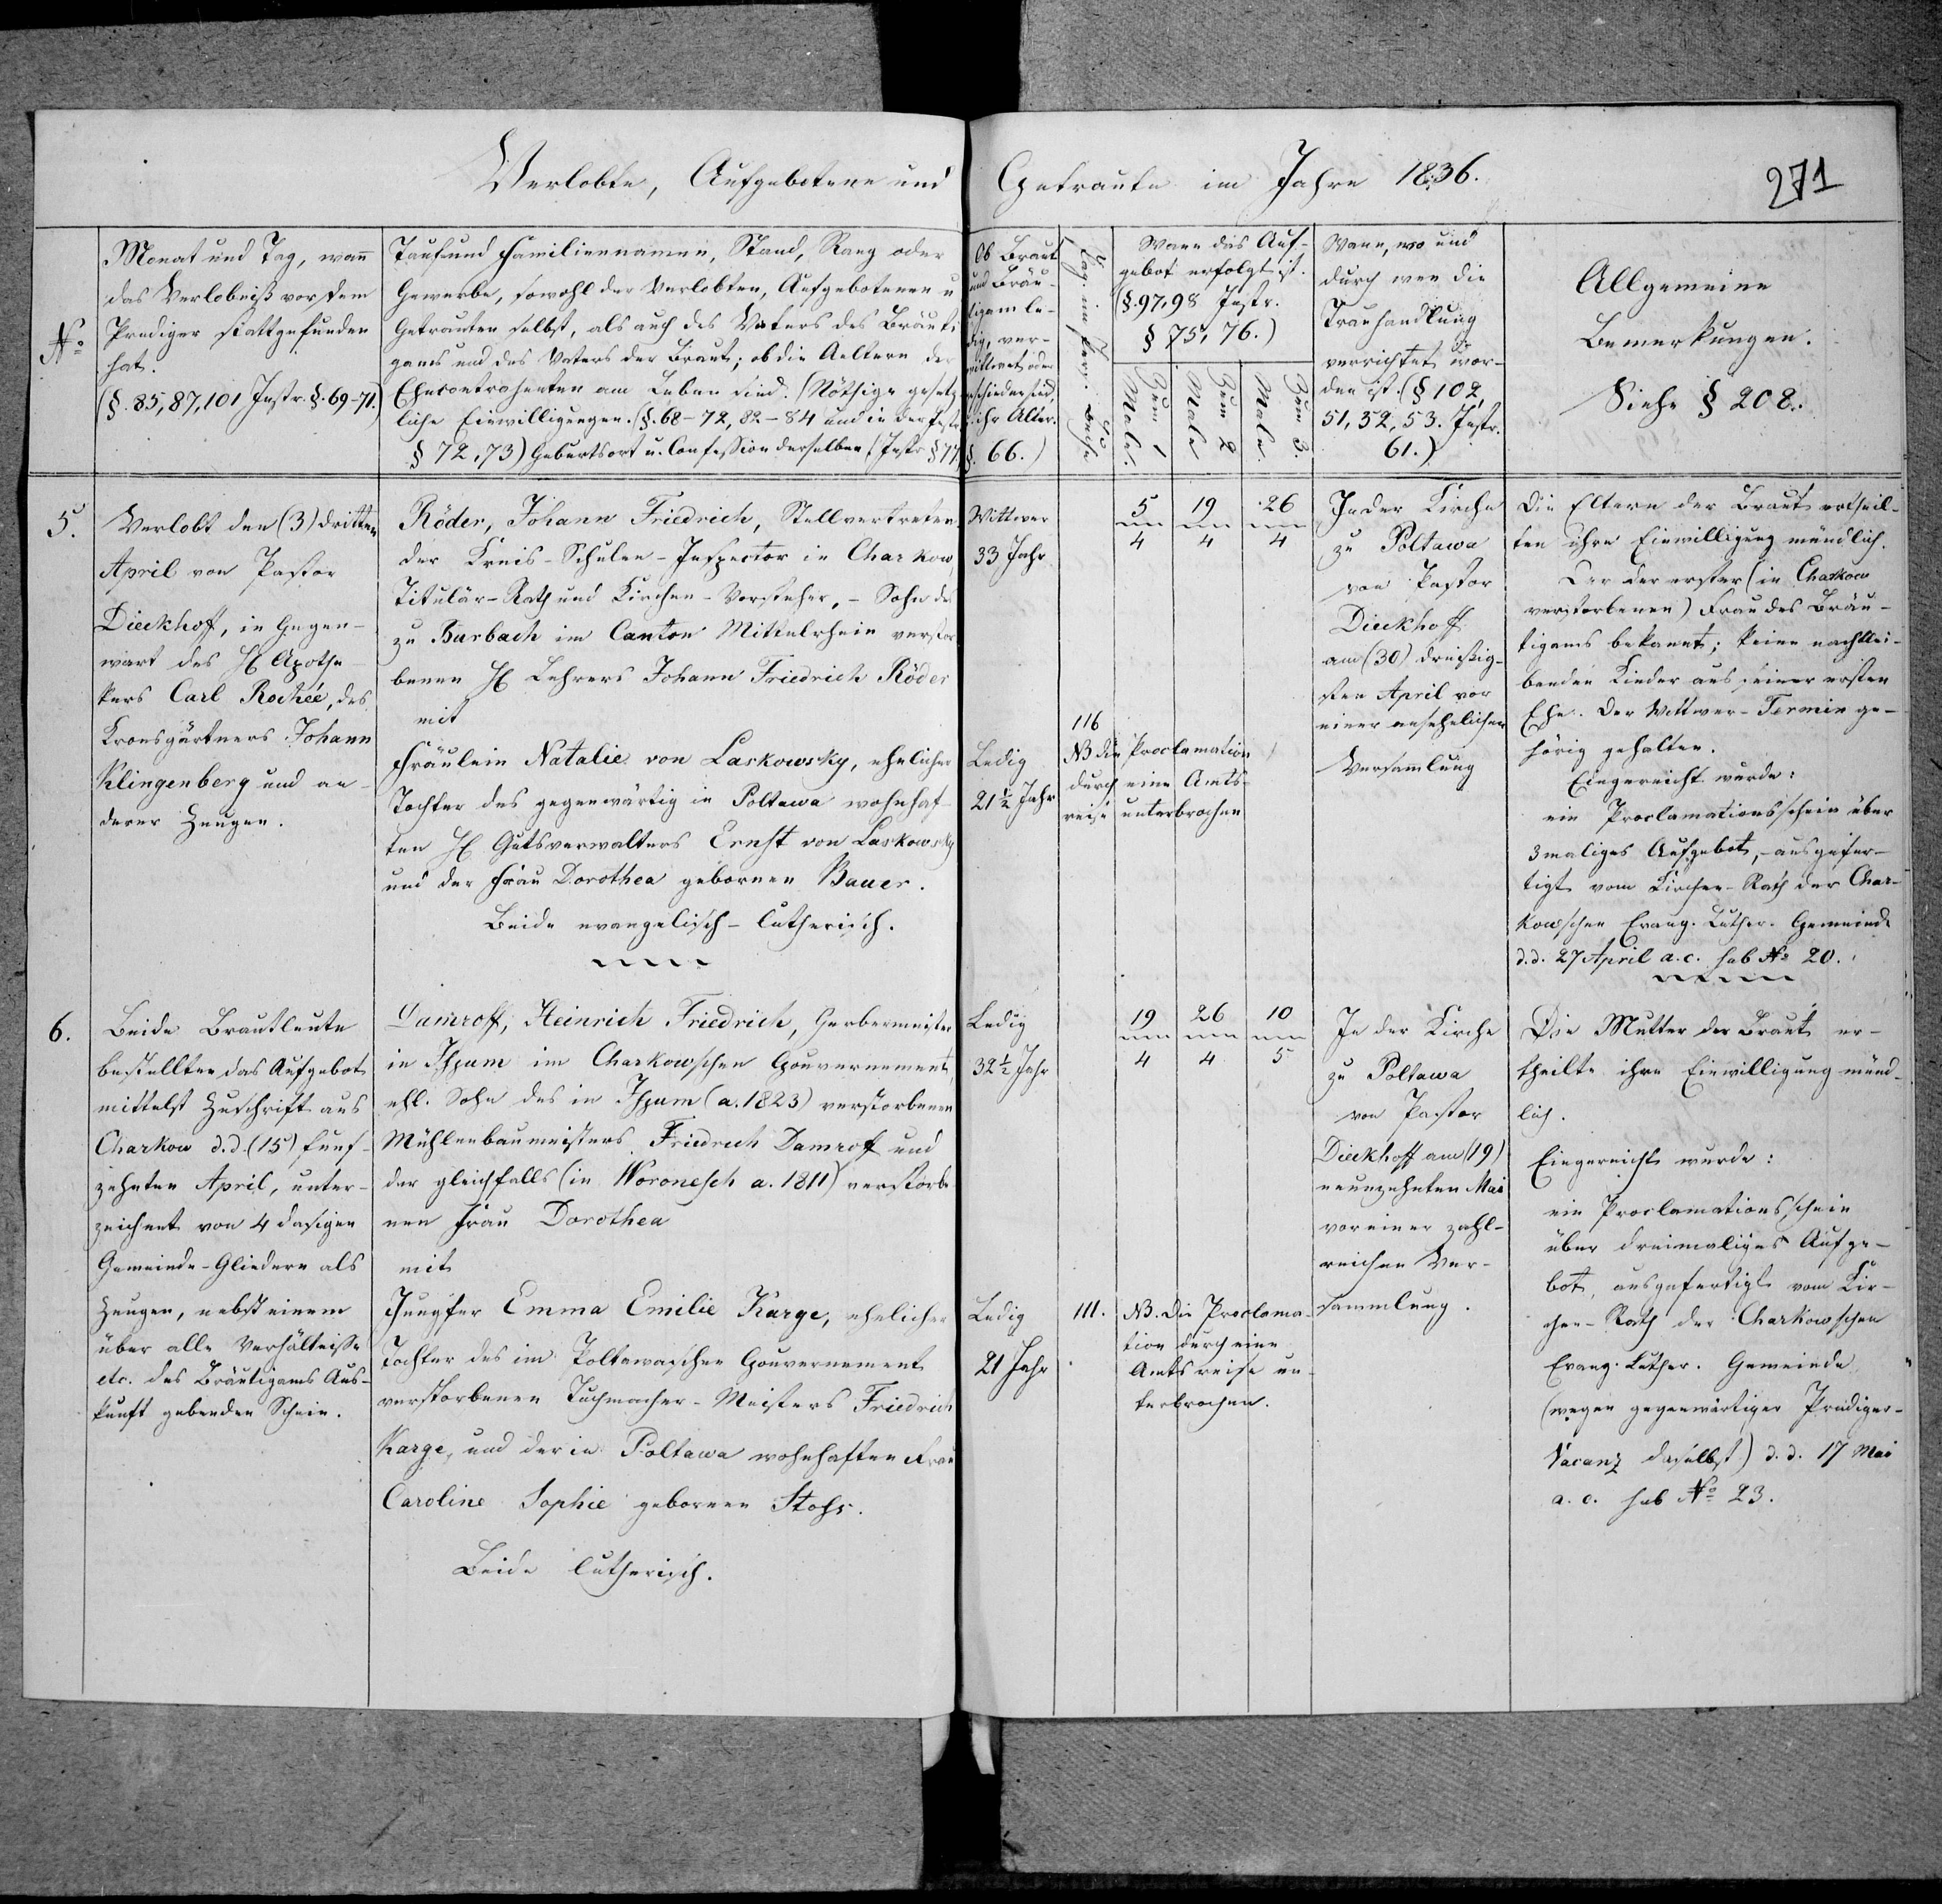 Verlobte, Aufgebotene und Getraute im Jahre 1836.
271
No
Monat und Tag, wann
das Verlobniß vor dem
Prediger stattgefunden
hat.
(§. 85, 87, 101 Instr. §. 69-71.)
Tauf und Familiennamen, Stand, Rang oder
Gewerbe, sowohl der Verlobten, Aufgebotenen u
Getrauten selbst, als auch des Vaters des Bräuti
gams und des Vaters der Braut; ob die Aeltern der
Ehecontrahenten am Leben sind. (Nöthige gesetz
liche Einwilligungen. (§. 68-72, 82-84 und in der Instr.
§ 72, 73) Geburtsort u. Confession derselben (Instr. § 77
Ob Braut
und Bräu-
tigam le-
dig, ver-
wittwet oder
geschieden sind,
u. ihr Alter.
§. 66.)
Pag. im Pers. Buche
Wann das Auf-
gebot erfolgt ist.
(§. 97, 98 Instr.
§ 75, 76.)
Zum 1 Male.
Zum 2 Male
Zum 3. Male.
Wann, wo und
durch wen die
Trauhandlung
verrichtet wor-
den ist. (§ 102,
51, 52, 53. Instr.
61.)
Allgemeine
Bemerkungen.
Siehe § 208.
5.
Verlobt den (3) dritten
April von Pastor
Dieckhoff, in Gegen-
wart des H Apothe-
kers Carl Rochée, des
Kronsgärtners Johann
Klingenberg und an-
derer Zeugen.
Röder, Johann Friedrich, Stellvertreten
der Kreis-Schulen-Inspector in Charkow
Titulär-Rath und Kirchen-Vorsteher, - Sohn des
zu Burbach im Canton Mittelrhein verstor
benen H Lehrers Johann Friedrich Röder
mit
Fräulein Natalie von Laskowsky, ehelicher
Tochter des gegenwärtig in Poltawa wohnhaf-
ten H Gutsverwalters Ernst von Laskowsky
und der Frau Dorothea gebornen Bauer.
Beide evangelisch-lutherisch.
Wittwer
33 Jahr
Ledig
21 1/2 Jahr
116
NB die Proclamation
durch eine Amts-
reise unterbrochen
5 19 26
4 4 4
In der Kirche
zu Poltawa
von Pastor
Dieckhoff
am (30) dreißig-
sten April vor
einer ansehnlichen
Versammlung
Die Eltern der Braut ertheil-
ten ihre Einwilligung mündlich.
Tod der ersten (in Charkow
verstorbenen) Frau des Bräu-
tigams bekannt; keine nachblei-
benden Kinder aus seiner ersten
Ehe. Der Wittwer-Termin ge-
hörig gehalten.
Eingereicht wurde:
ein Proclamationsschein über
3 maliges Aufgebot, ausgefer-
tigt vom Kirchen-Rath der Char-
kowschen Evang. Luther. Gemeinde
d. d. 27 April a. c. sub No 20.
6.
Beide Brautleute
bestellten das Aufgebot
mittelst Zuschrift aus
Charkow d. d. (15) funf-
zehnten April, unter-
zeichnet von 4 dasigen
Gemeinde-Gliedern als
Zeugen, nebst einem
über alle Verhältnisse
etc. des Bräutigams Aus-
kunft gebenden Schein.
Damroff, Heinrich Friedrich, Gerbermeister
in Isjum im Charkowschen Gouvernement,
ehl. Sohn des in Isjum (a. 1823) verstorbenen
Mühlenbaumeisters Friedrich Damroff und
der gleichfalls (in Woronesch a. 1811) verstorbe
nen Frau Dorothea
mit
Jungfer Emma Emilie Karge, ehelicher
Tochter des im Poltawaschen Gouvernement
verstorbenen Tuchmacher-Meisters Friedrich
Karge, und der in Poltawa wohnhaften Frau
Caroline Sophie gebornen Stohr.
Beide lutherisch.
Ledig
32 1/2 Jahr
Ledig
21 Jahr
111.
NB. Die Proclama-
tion durch eine
Amtsreise un-
terbrochen.
19 26 10
4 4 5
In der Kirche
zu Poltawa
von Pastor
Dieckhoff am (19)
neunzehnten Mai
vor einer zahl-
reichen Ver-
sammlung.
Die Mutter der Braut er-
theilte ihre Einwilligung münd-
lich.
Eingereicht wurde:
ein Proclamationsschein
über dreimaliges Aufge-
bot, ausgefertigt vom Kir-
chen-Rath der Charkowschen
Evang. Luther. Gemeinde
(wegen gegenwärtiger Prediger-
Vacanz daselbst) d. d. 17 Mai
a. c. sub No 23.